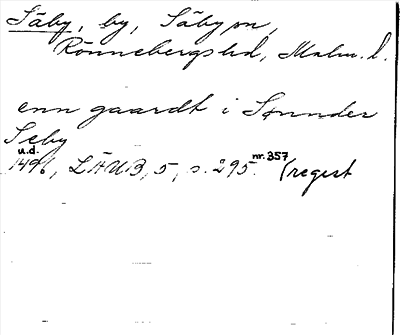 Säby, by, Säby sn,
Rönnebergs hd, Malm. l.
enn gaardt i Sønnder
Seby
u.d.
1496, LÄUB, 5, s. 295. nr. 357 (regest